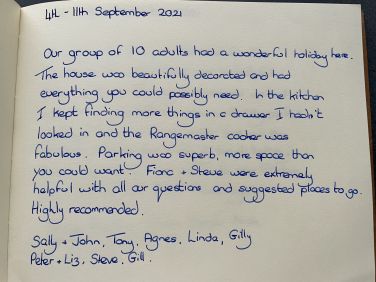 4th - 11th September 2021
Our group of 10 adults had a wonderful holiday here.
The house was beautifully decorated and had
everything you could possibly need. In the kitchen
I kept finding more things in a drawer I hadn't
looked in and the Rangemaster cooker was
fabulous. Parking was superb, more space than
you could want. Fiona + Steve were extremely
helpful with all our questions and suggested places to go.
Highly recommended.
Sally + John, Tony, Agnes, Linda, Gilly
Peter + Liz, Steve, Gill.